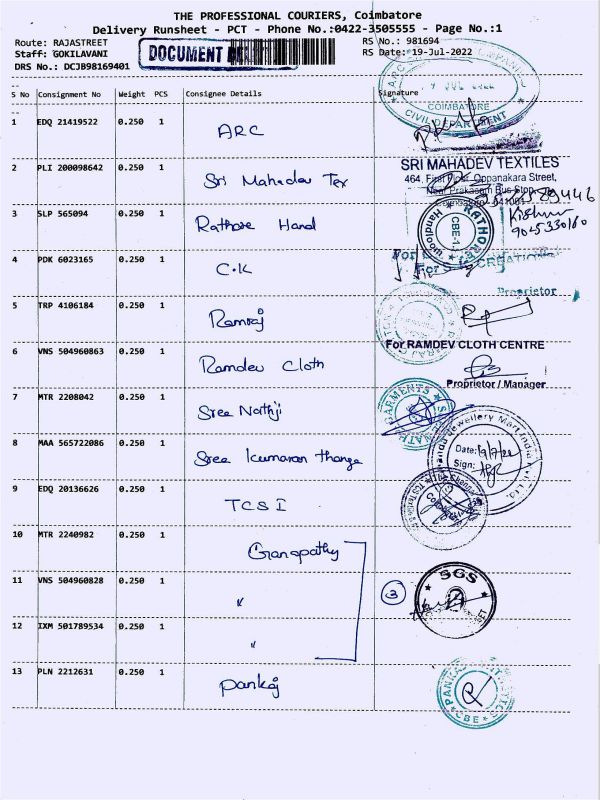 THE PROFESSIONAL COURIERS, Coimbatore
Delivery Runsheet - PCT - Phone No.:0422-3505555 - Page No.:1
Route: RAJASTREET
RS No.: 981694
Staff: GOKILAVANI
DOCUMENT
RS Date: 19-Jul-2022
DRS No.: DCJB98169401
S No Consignment No Weight PCS Consignee Details Signature
1 EDQ 21419522 0.250 1 ARC
COIMBATORE
CIVIL DEPARTMENT
2 PLI 200098642 0.250 1 Sri Mahadev Tex
SRI MAHADEV TEXTILES
464, First Floor, Oppanakara Street,
Near Prakasam Bus Stop,
3 SLP 565094 0.250 1 Rathore Hand
RATHORE
Handloom
CBE-1
Kishor
4 PDK 6023165 0.250 1 C.K
For
CREATION
Proprietor
5 TRP 4106184 0.250 1 Ramraj
6 VNS 504960863 0.250 1 Ramdev Cloth
For RAMDEV CLOTH CENTRE
Proprietor / Manager
7 MTR 2208042 0.250 1 Sree Nathji
GARMENTS
8 MAA 565722086 0.250 1 Sree Kumaran thanga
Jewellery Mart India Pvt. Ltd.
Date: 19/7/22
Sign:
9 EDQ 20136626 0.250 1 TCS I
10 MTR 2240982 0.250 1 Ganapathy
11 VNS 504960828 0.250 1 "
3
SGS
12 IXM 501789534 0.250 1 "
13 PLN 2212631 0.250 1 Pankaj
CBE